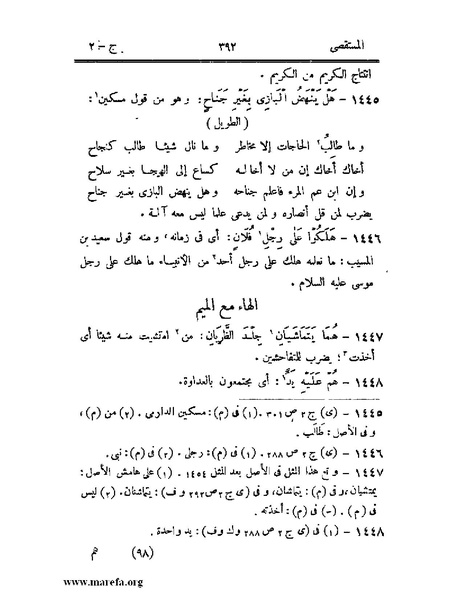 المستقصى ٣٩٢ ج - ٢
انتاج الكريم من الكريم .
١٤٤٥ - هَلْ يَنْهَضُ الْبَازِى بِغَيْرِ جَنَاحٍ: وهو من قول مسكين١:
( الطويل )
و ما طالبُ٢ الحاجات إلا مخاطر و ما نال شيئا طالب كنجاح
أخاك أخاك إن من لا أخا له كساع إلى الهيجا بغير سلاح
و إن ابن عم المرء فاعلم جناحه وهل ينهض البازى بغير جناح
يضرب لمن قل أنصاره و لمن يدعى علما ليس معه آلة .
١٤٤٦ - هَلَكُوا عَلَى رِجْلِ١ فُلَانٍ: أى فى زمانه ، ومنه قول سعيد بن
المسيب: ما نعلمه هلك على رجل أحد٢ من الأنبياء ما هلك على رجل
موسى عليه السلام .
الهاء مع الميم
١٤٤٧ - هُمَا يَتَمَاشَيَانِ١ جِلْدَ الظَّرِبَانِ: من٢ امتشيت منه شيئا أى
أخذت٣؛ يضرب للتفاحشين.
١٤٤٨ - هُمْ عَلَيْهِ يَدٌ١: أى مجتمعون بالعداوة.
١٤٤٥ - (ى) ج ٢ ص ٣٠١ . (١) فى (م): مسكين الدارمى . (٢) من (م) ،
و فى الأصل: طَالَب .
١٤٤٦ - (ى) ج ٢ ص ٢٨٨ . (١) فى (م): رجلى . (٢) فى (م): نبى .
١٤٤٧ - وقع هذا المثل فى الأصل بعد المثل ١٤٥٤ . (١) على هامش الأصل:
يمتشيان ، و فى (م): يتماشان ، و فى (ى ج ٢ ص ٢٩٢ و ف): يتماشنان . (٢) ليس
فى (م) . (٣) فى (م): أخذته .
١٤٤٨ - (١) فى (ى ج ٢ ص ٢٨٨ و ك و ف): يد واحدة .
(٩٨) هم
www.marefa.org